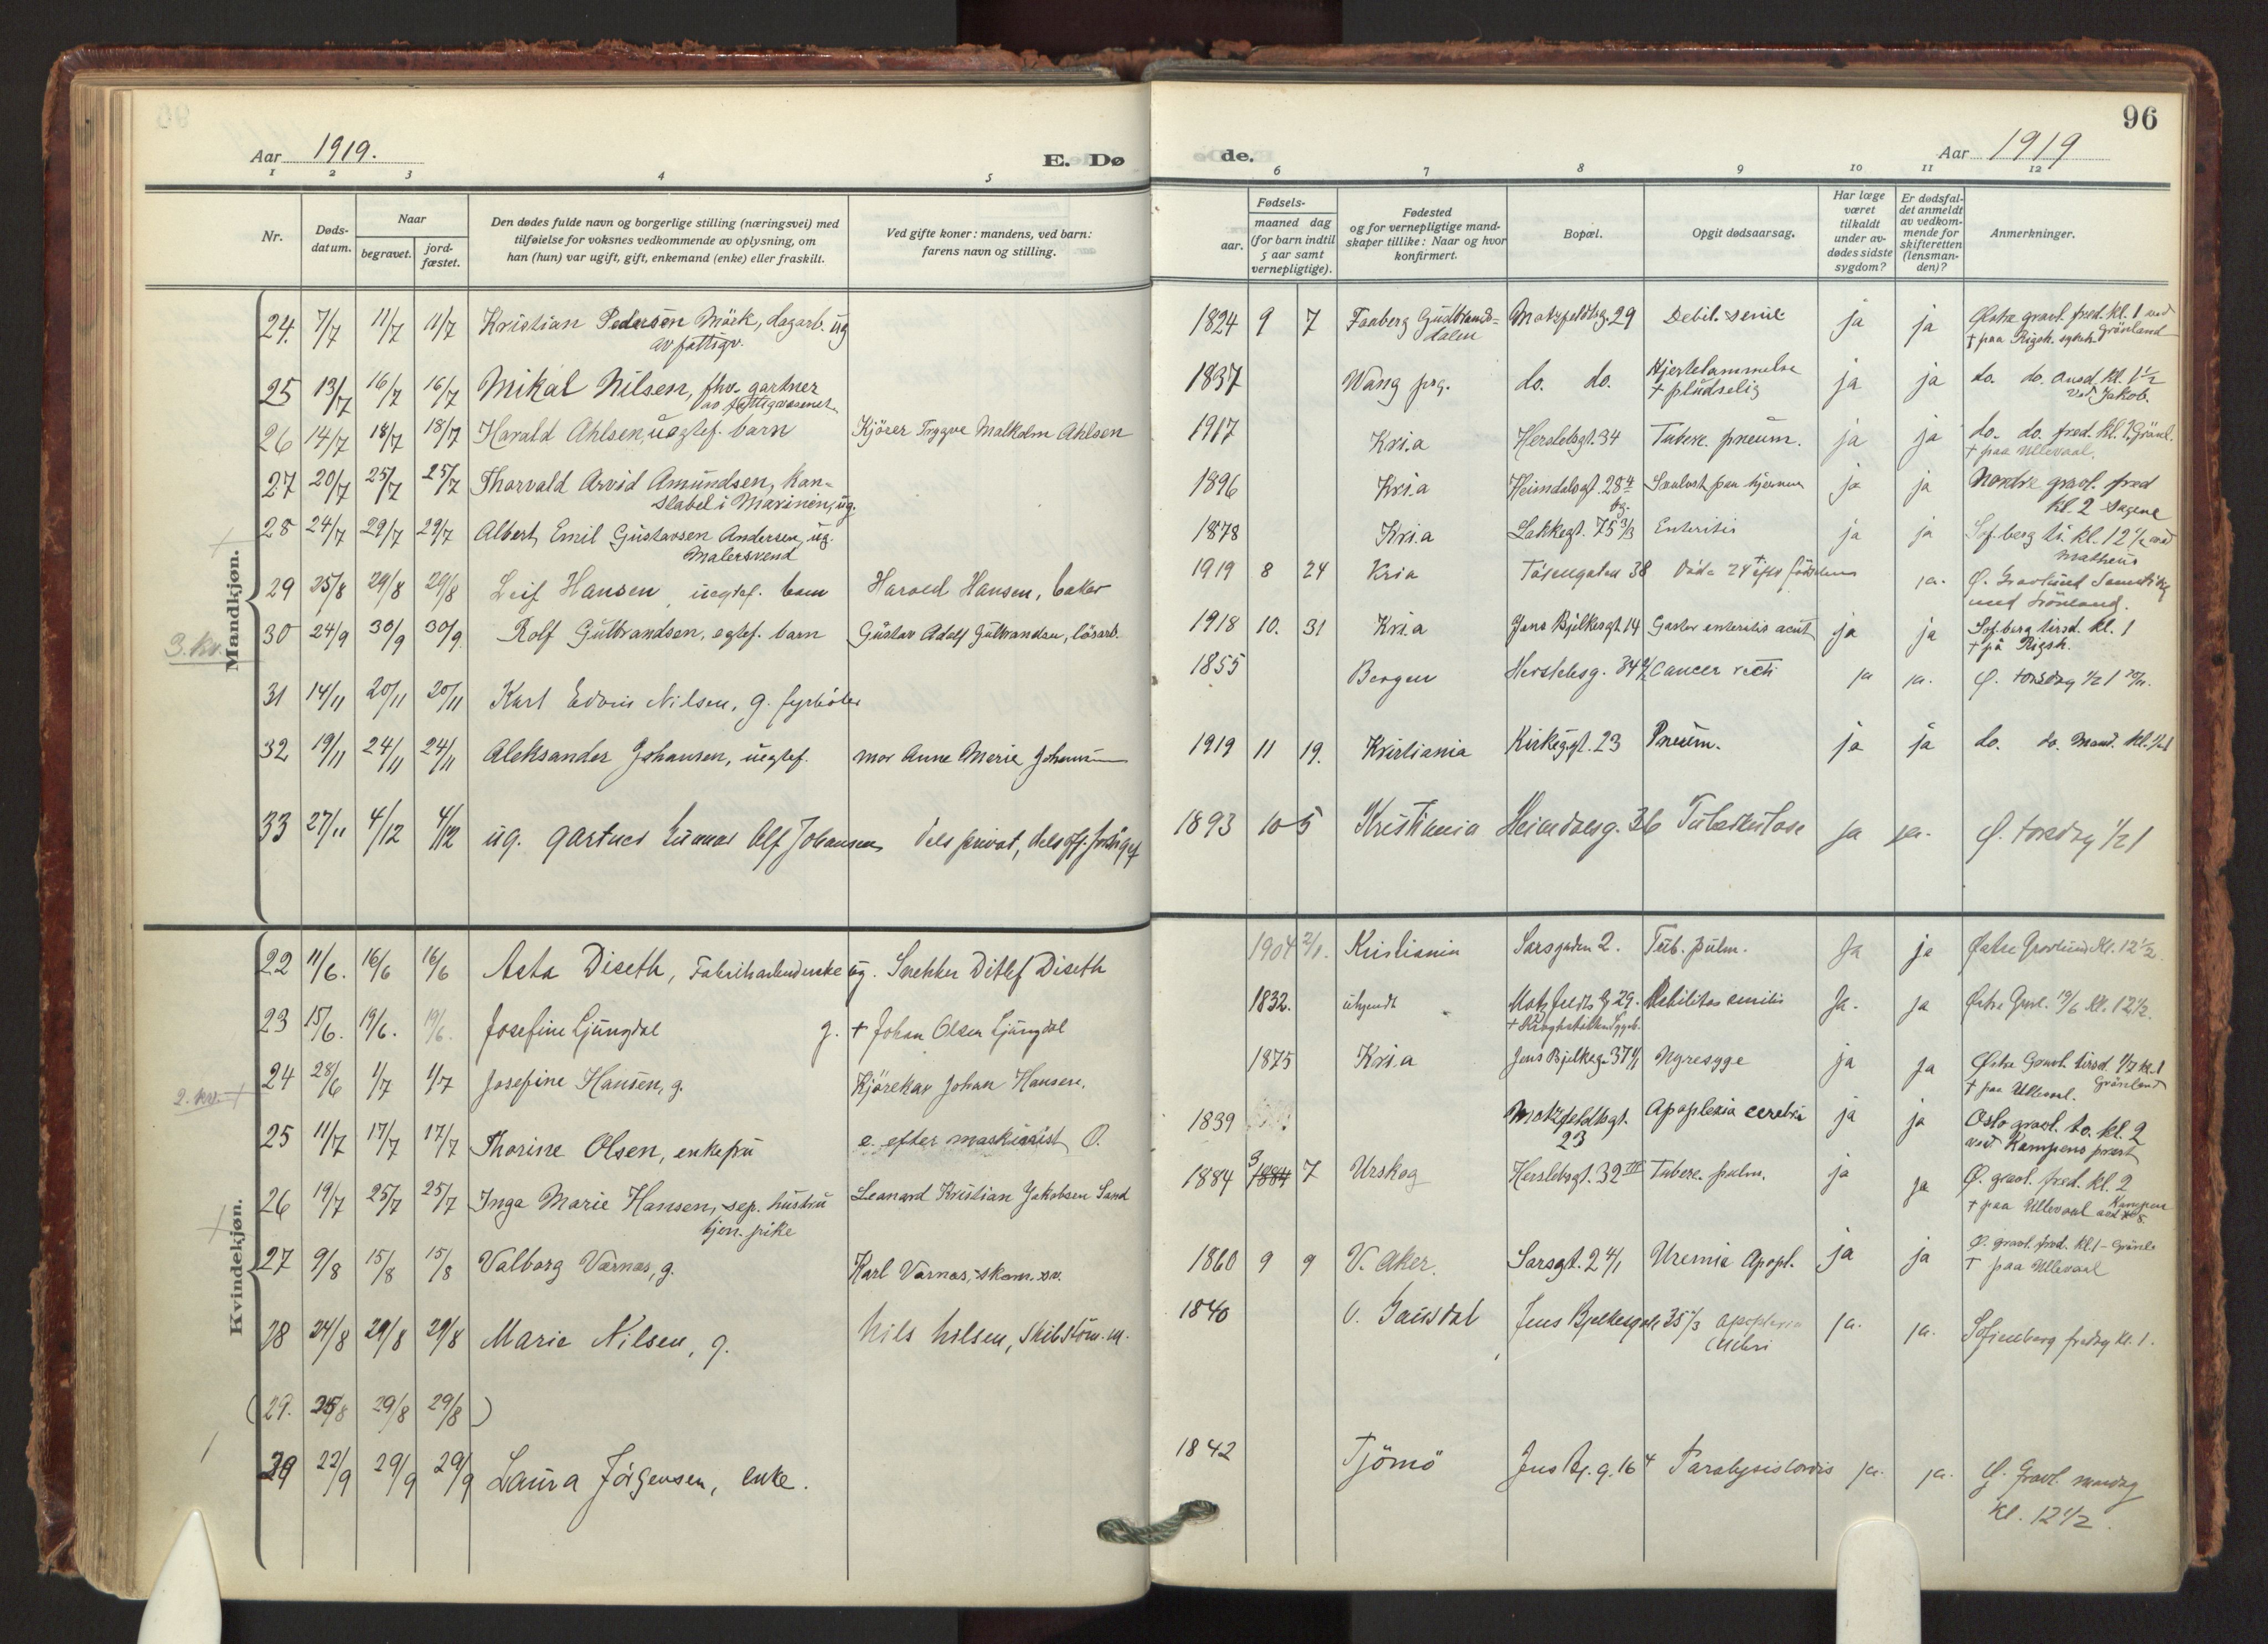 96
Aar 1919.
E. Dø
de.
Aar 1919
1 2 3 4 5
6 7 8 9 10 11 12
Nr.
Døds-
datum.
Naar
begravet.
jord-
fæstet.
Den dødes fulde navn og borgerlige stilling (næringsvei) med
tilføielse for voksnes vedkommende av oplysning, om
han (hun) var ugift, gift, enkemand (enke) eller fraskilt.
Ved gifte koner: mandens, ved barn:
farens navn og stilling.
Fødsels-
aar.
maaned dag
(for barn indtil
5 aar samt
vernepligtige).
Fødested
og for vernepligtige mand-
skaper tillike: Naar og hvor
konfirmert.
Bopæl.
Opgit dødsaarsag.
Har læge
været
tilkaldt
under av-
dødes sidste
sygdom?
Er dødsfal-
det anmeldt
av vedkom-
mende for
skifteretten
(lensman-
den)?
Anmerkninger.
Mandkjøn.
3. kv.
24. 7/7 11/7 11/7 Kristian Pedersen Mörk, dagarb. ug 1824 9 7 Faaberg Gudbrands= Motzfeldtsg. 29 Debil. senil. ja ja Østre gravl. fred. kl. 1 ved
av fattigv. dalen † paa Rigsh. Grönland
25 13/7 16/7 16/7 Mikal Nilsen, fhv. gartner 1837 Wang prg. do. do. Hjertelammelse ja ja do. do. onsd. kl. 1½
av fattigvæsenet. † pludselig ved Jakob.
26 14/7 18/7 18/7 Harald Ahlsen, uegtef. barn Kjörer Trygve Malkolm Ahlsen 1917 Kri.a Herslebsgt. 34 Tuberc. pneum. ja ja do. do. fred. kl. 1. Grönl.
† paa Ullevaal.
27 20/7 25/7 25/7 Thorvald Arvid Amundsen, kon- 1896 Kri.a Heimdalsgt. 28 ja ja Nordre gravl. fred
stabel i Marinen, ug. kl. 2 Sagene
28 24/7 29/7 29/7 Albert Emil Gustavsen Andersen, ug. 1878 Kri.a Lakkegt. 75 3/3 Enteritis ja ja Sof. berg ti. kl. 12½ ved
Malersvend Matheus
29 25/8 29/8 29/8 Leif Hansen uegtef. barn Harald Hansen, baker 1919 8 24 Kria Töiengaten 38 ja.
30 24/9 30/9 30/9 Rolf Gulbrandsen, egtef. barn Gustav Adolf Gulbrandsen, lösarb. 1918 10. 31 Kri.a Jens Bjelkesgt. 14 Gastro enteritis acut ja ja Sof. berg tirsd. kl. 1
† på Rigsh.
31 14/11 20/11 20/11 Karl Edvin Nilsen, g. fyrböter 1855 Bergen Herslebsg. 34 Cancer recti ja ja. Ø. torsdag ½1 20/11.
32 19/11 24/11 24/11 Aleksander Johansen, uegtef. mor Anne Marie Johansen 1919 11 19. Kristiania Kirkegt. 23 Pneum. ja ja do. do. Mand. kl. ½1
33 27/11 4/12 4/12 ug. gartner Gunnar Alf Johansen dels privat, dels off. forsörget 1893 10 5 Kristiania Heimdalsg. 36 Tuberkulose ja ja. Ø. torsdag ½1
Kvindekjøn.
2. kv.
22 11/6. 16/6 16/6 Asta Diseth, Fabrikarbeiderske ug. Snekker Ditlef Diseth 1904 2/1. Kristiania Sarsgaden 2. Tub. pulm. Ja ja Østre Gravlund Kl. 12½.
23 15/6. 19/6. 19/6. Josefine Ljungdal g. † Johan Olsen Ljungdal 1832. ubyendt Motzfeldts g 29. Debilitas senilis Ja. ja Østre Gravl. 19/6 Kl. 12½.
24 28/6 1/7 1/7 Josefine Hansen, g. Kjörekar Johan Hansen. 1875 Kri.a Jens Bjelkesg. 37 Nyresyge ja ja Østre Gravl. tirsd. 1/7 kl. 1
† paa Ullevaal. Grönland
25 11/7 17/7 17/7 Thorine Olsen, enkefru e. efter maskinist O. 1839 Motzfeldtsgt. Apoplexia cerebri ja ja Oslo gravl. to. kl. 2
23 ved Kampens prest
26 19/7 25/7 25/7 Inga Marie Hansen, sep. hustru Leonard Kristian Jakobsen Sand 1884 3 7 Urskog Herslebsgt. 32 III Tuberc. pulm. ja ja Ø. gravl. fred. kl. 2
tjen. pike † paa Ullevaal Kampen
27 9/8 15/8 15/8 Valborg Værnas, g. Karl Varnas, skom. sv. 1860 9 9 V. Aker. Sarsgt. 2 4/1 Uremia Apopl. ja ja Ø. gravl. fred. kl. 1 - Grönl.
† paa Ullevaal
28 24/8 29/8 29/8 Marie Nilsen, g. Nils Nilsen, Skibstöm. m. 1840 Ö. Gausdal Jens Bjelkesgate 35 2/3 apoplexia ja. ja. Sofienberg fredag kl. 1.
cerebri
(29. 25/8 29/8 29/8 )
29 22/9 29/9 29/9 Laura Jörgensen, enke. 1842 Tjömö Jens Bj. g. 16 4 Paralysis cordis ja. ja. Ø. Gravl. mandag
kl. 12½.